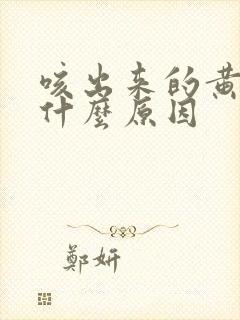 咳出来的黄
什麼原因
鄭妍